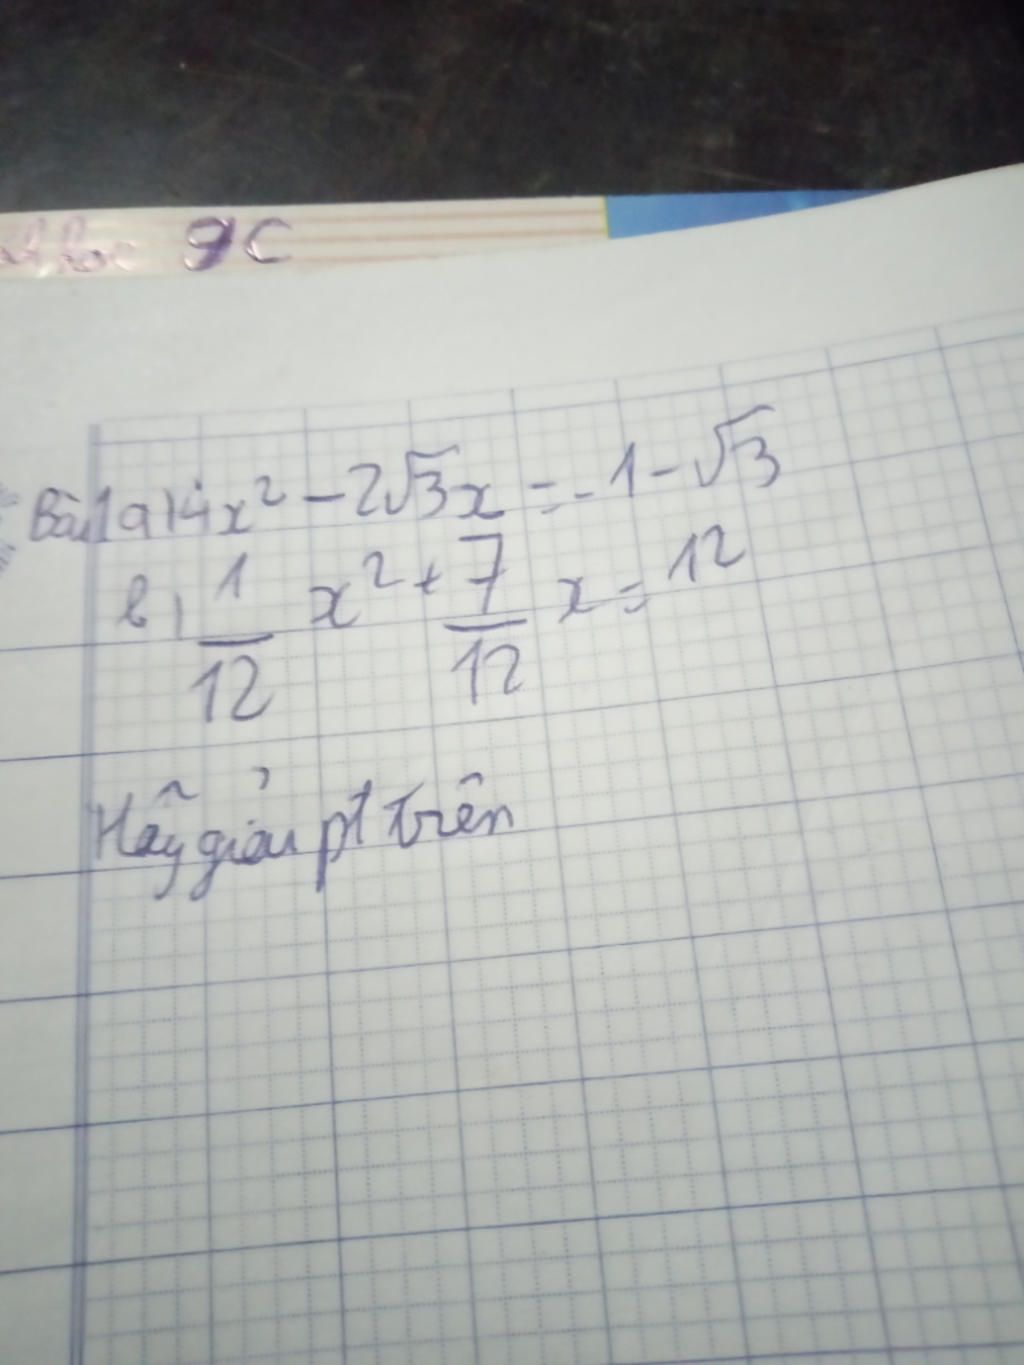 9C
Bài 1 a) 4x² - 2√3x = -1 - √3
b, 1/12 x² + 7/12 x = 12
Hãy giải pt trên